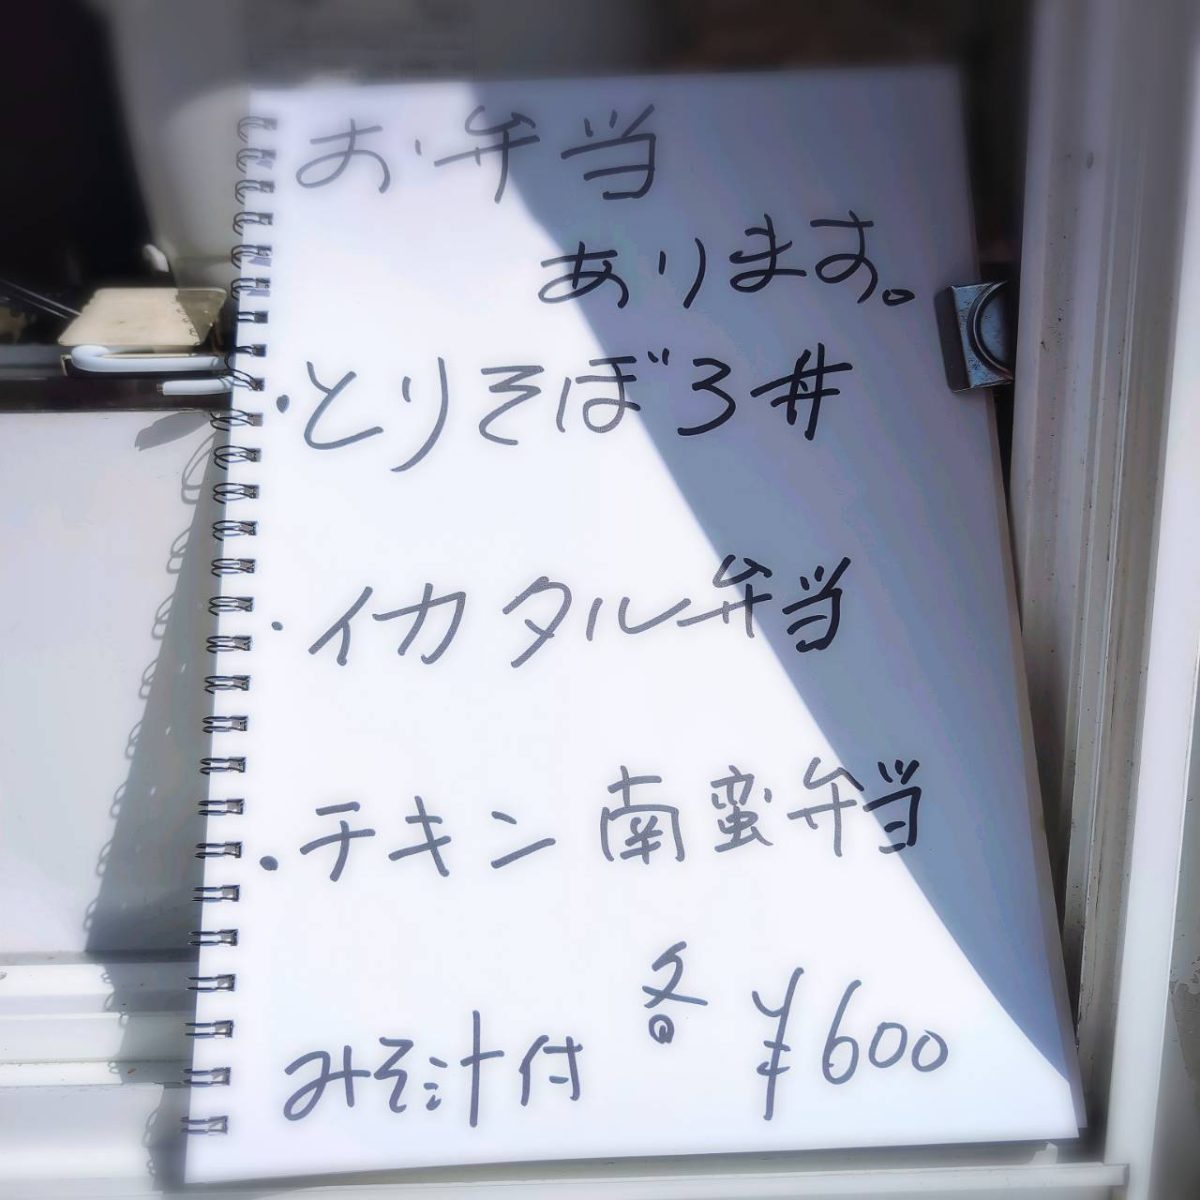 お弁当
あります。
・とりそぼろ丼
・イカタル弁当
・チキン南蛮弁当
みそ汁付 各¥600